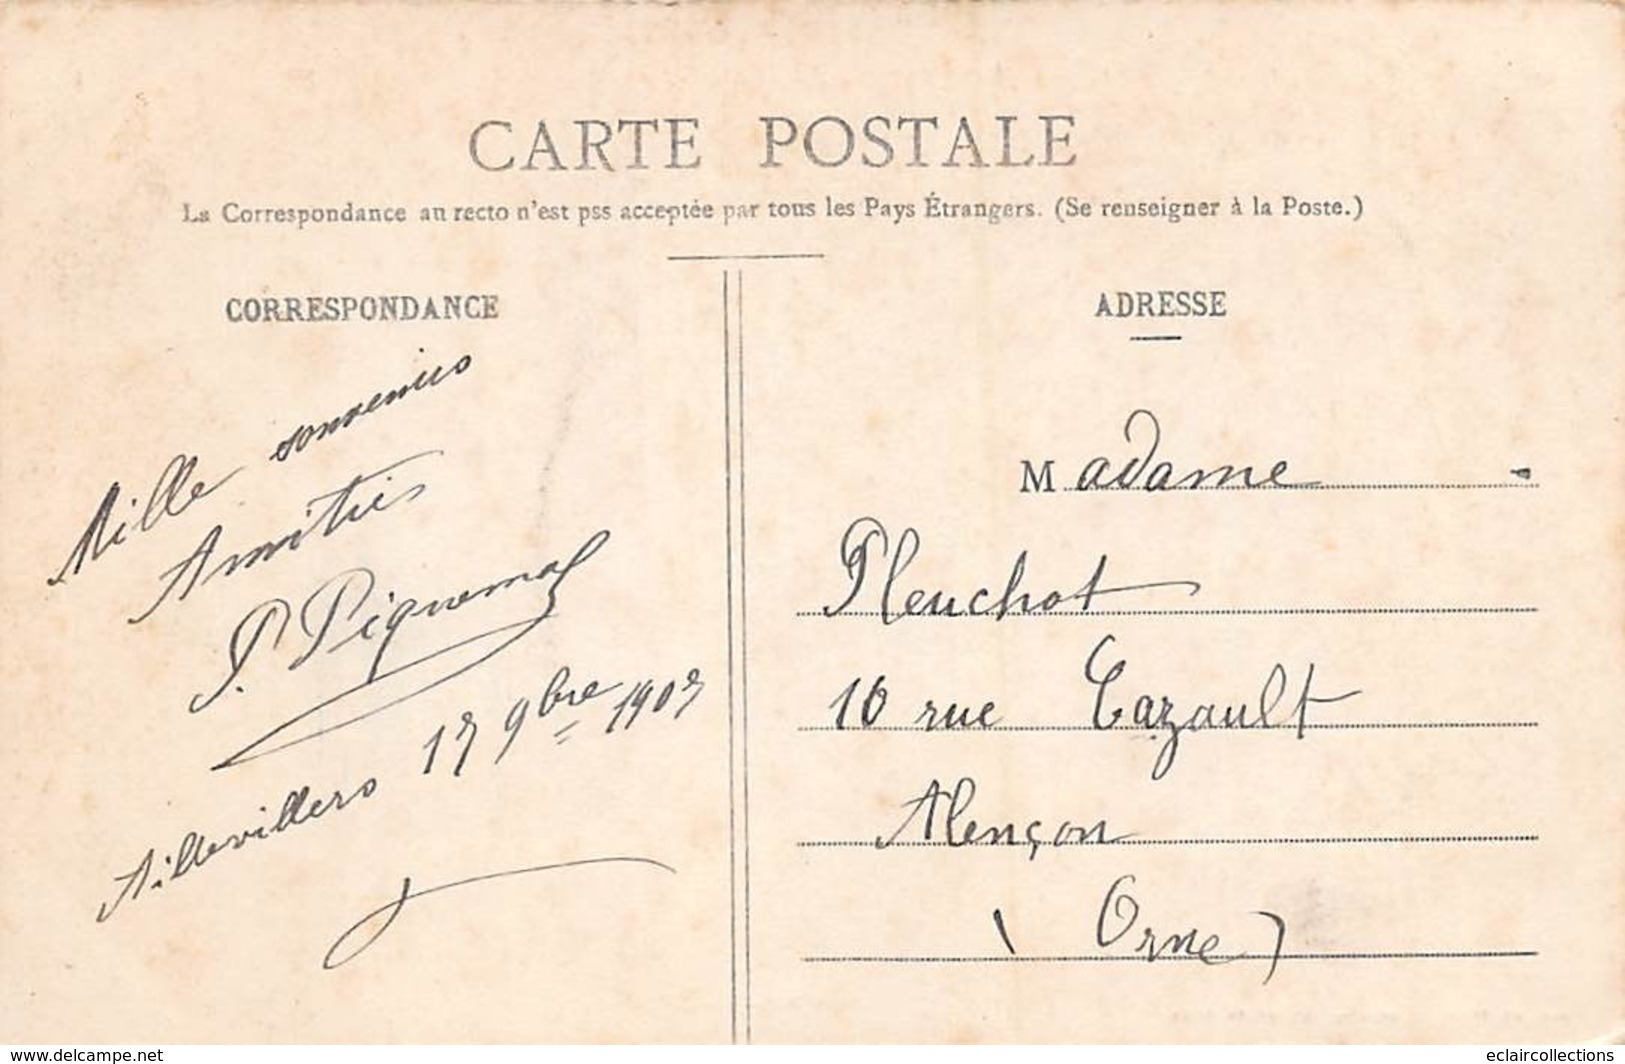 CARTE POSTALE
La Correspondance au recto n'est pss acceptée par tous les Pays Étrangers. (Se renseigner à la Poste.)
CORRESPONDANCE
Mille souvenirs
Amitiés
P. Piquemal
Aillevillers 17 9bre 1907
ADRESSE
Madame
Pleuchot
10 rue Cazault
Alençon
(Orne)
www.delcampe.net
eclaircollections